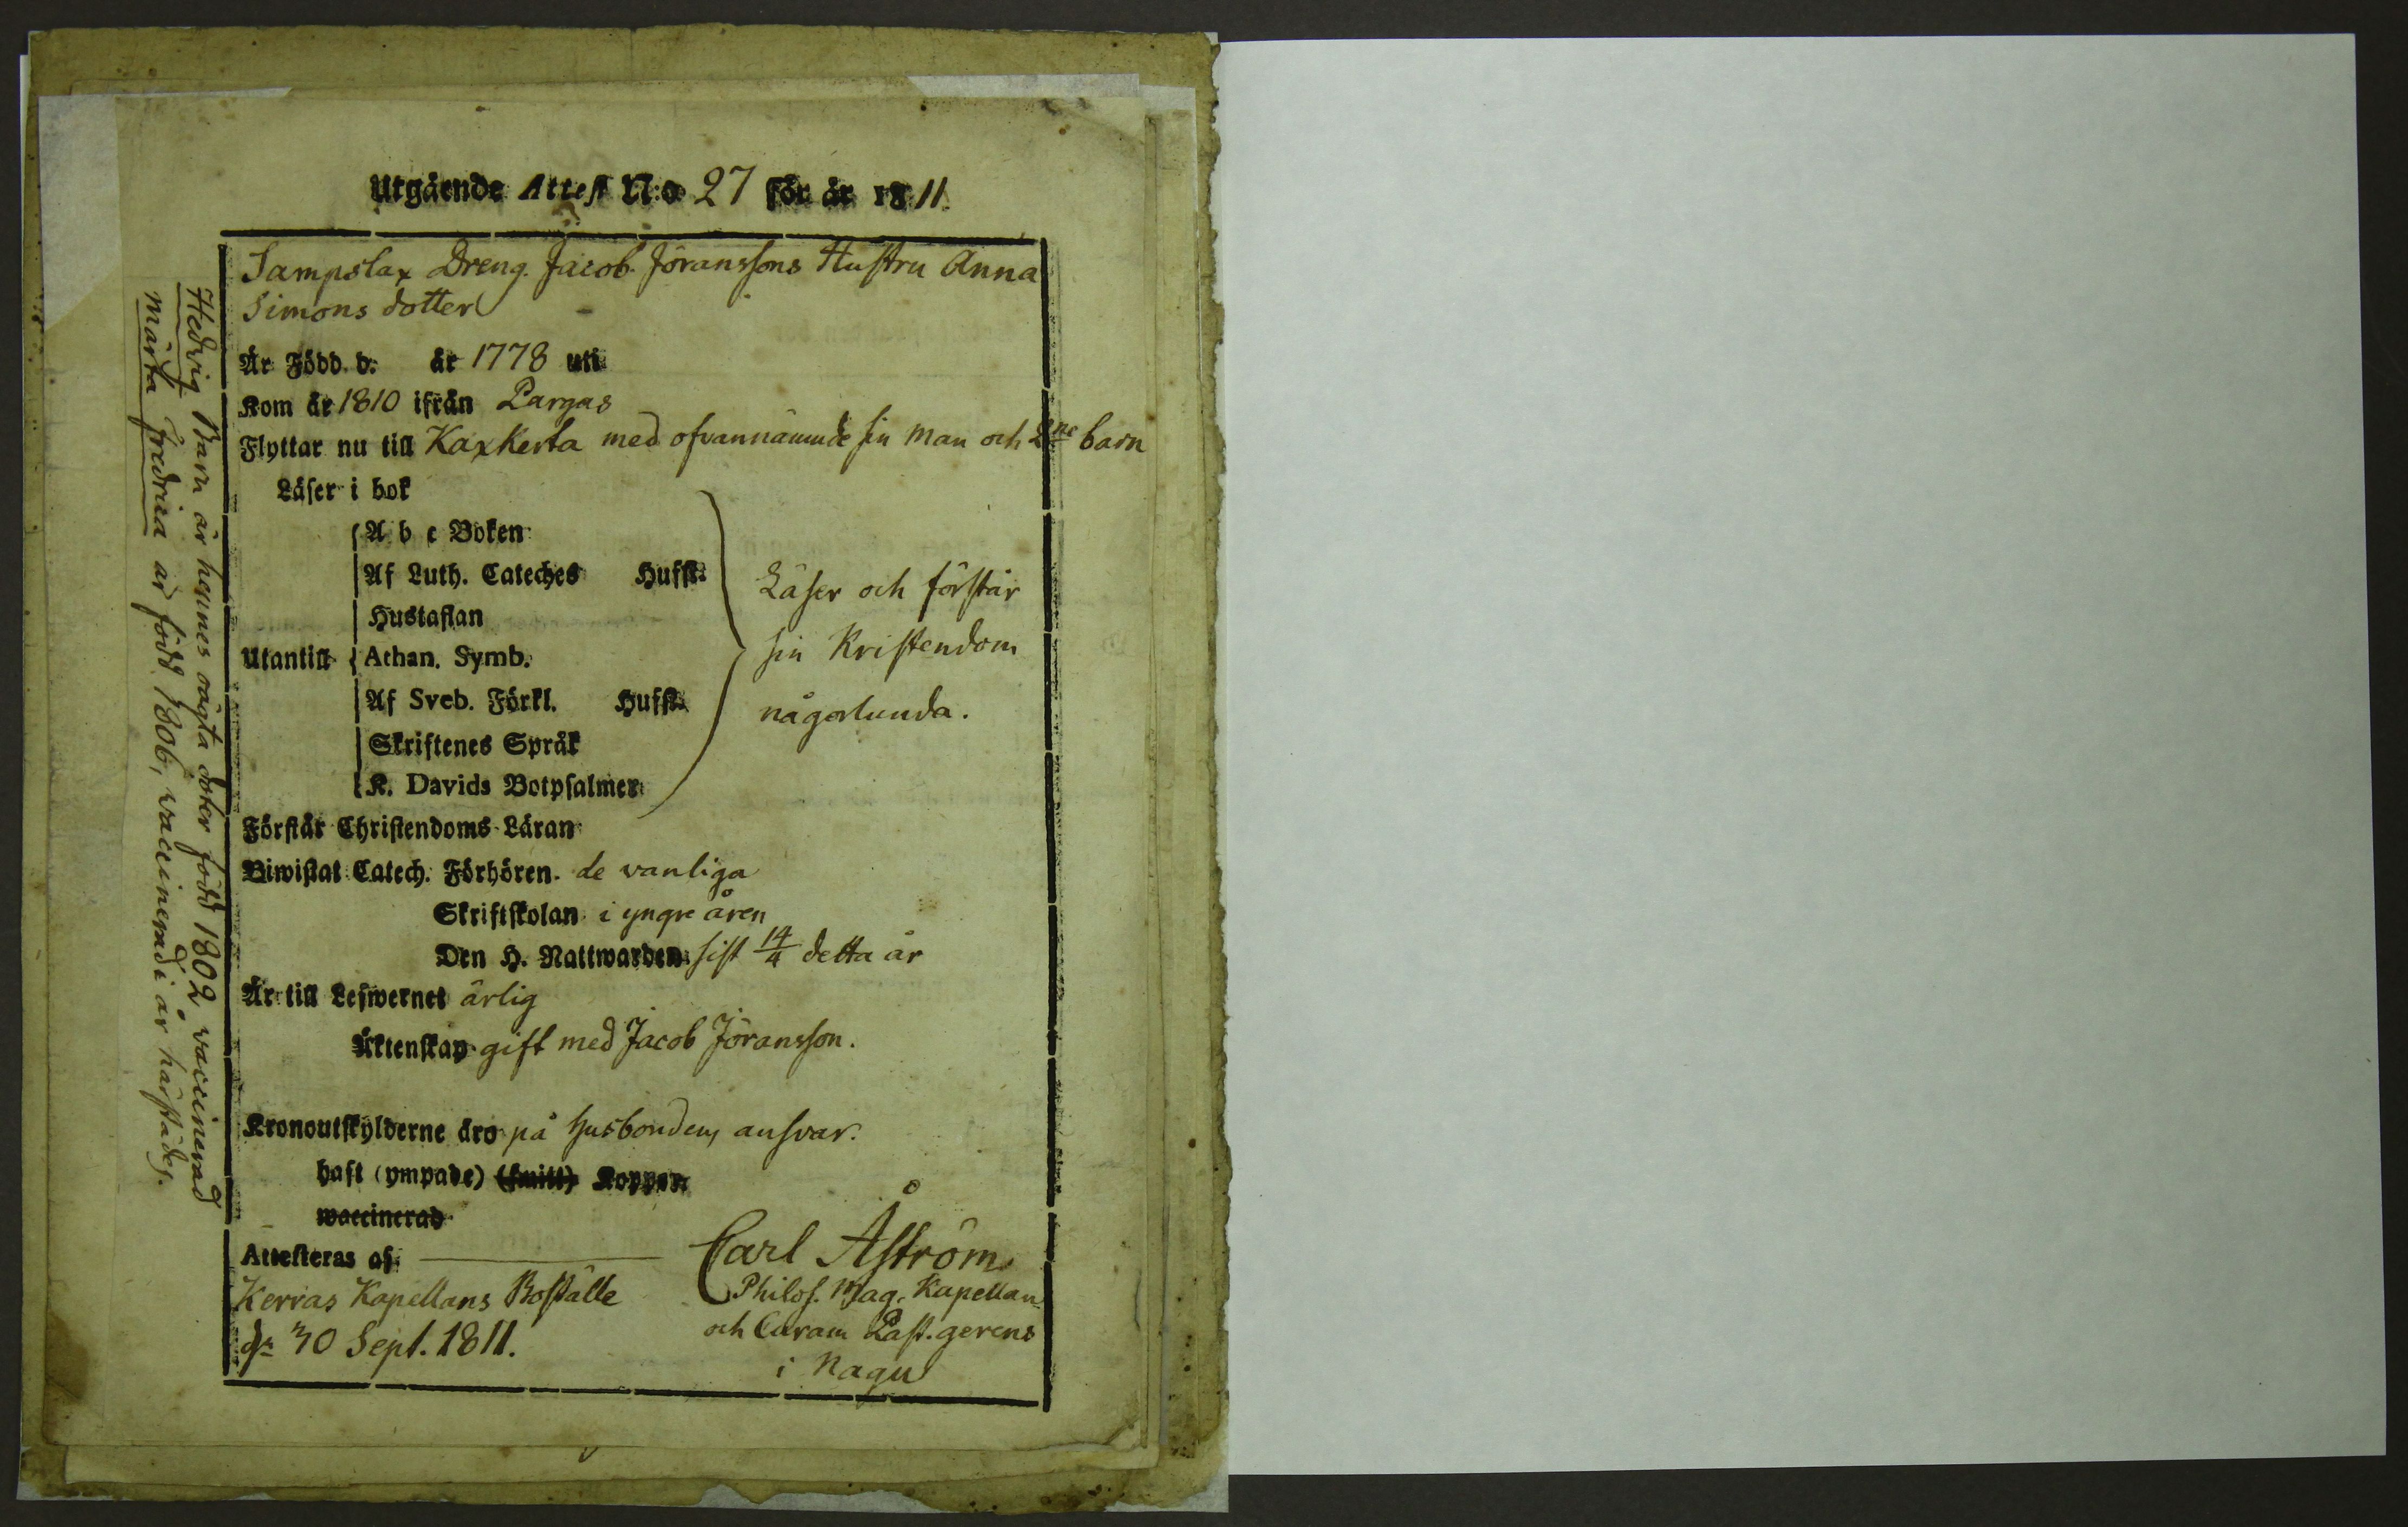 Utgående Attest N:o 27 för år 1811
Sampslax Dreng. Jacob Jöranssons Hustru Anna
Simons dotter
År Född d. år 1778 uti
Kom år 1810 ifrån Pargas
Flyttar nu till Kaxkerta med ofvannämnde sin man och 2ne barn
Läser i bok
A b c Boken
Af Luth. Cateches Hufst.
Hustaflan
Utantill Athan. Symb.
Af Sveb. Förkl. Hufst.
Skriftenes Språk
K. Davids Botpsalmer
Läser och förstår
sin Kristendom
någorlunda.
Förstår Christendoms Läran
Biwistat Catech. Förhören. de vanliga
Skriftskolan i yngre åren
Den H. Nattwarden sist 14/4 detta år
Är till Lefwernet ärlig
Äktenskap gift med Jacob Jöransson.
Kronoutskylderne äro på husbondens ansvar.
haft (ympade) (smitt) Koppor
waccinerad
Attesteras af Carl Åström
Philos. Mag. Kapellan
och Curam Past. gerens
i Nagu
Kerras Kapellans Boställe
dn 30 Sept. 1811.
Hedvig Barn är hennes oägta doter född 1802, vaccinerad
Märta Fredrica är född 1806, vaccinerad i år härstädes.